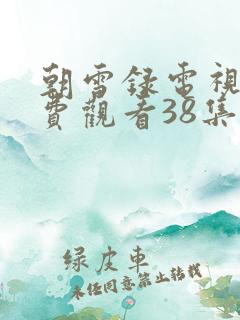 朝雪錄電視
費觀看38集
綠皮車
未經同意禁止轉載